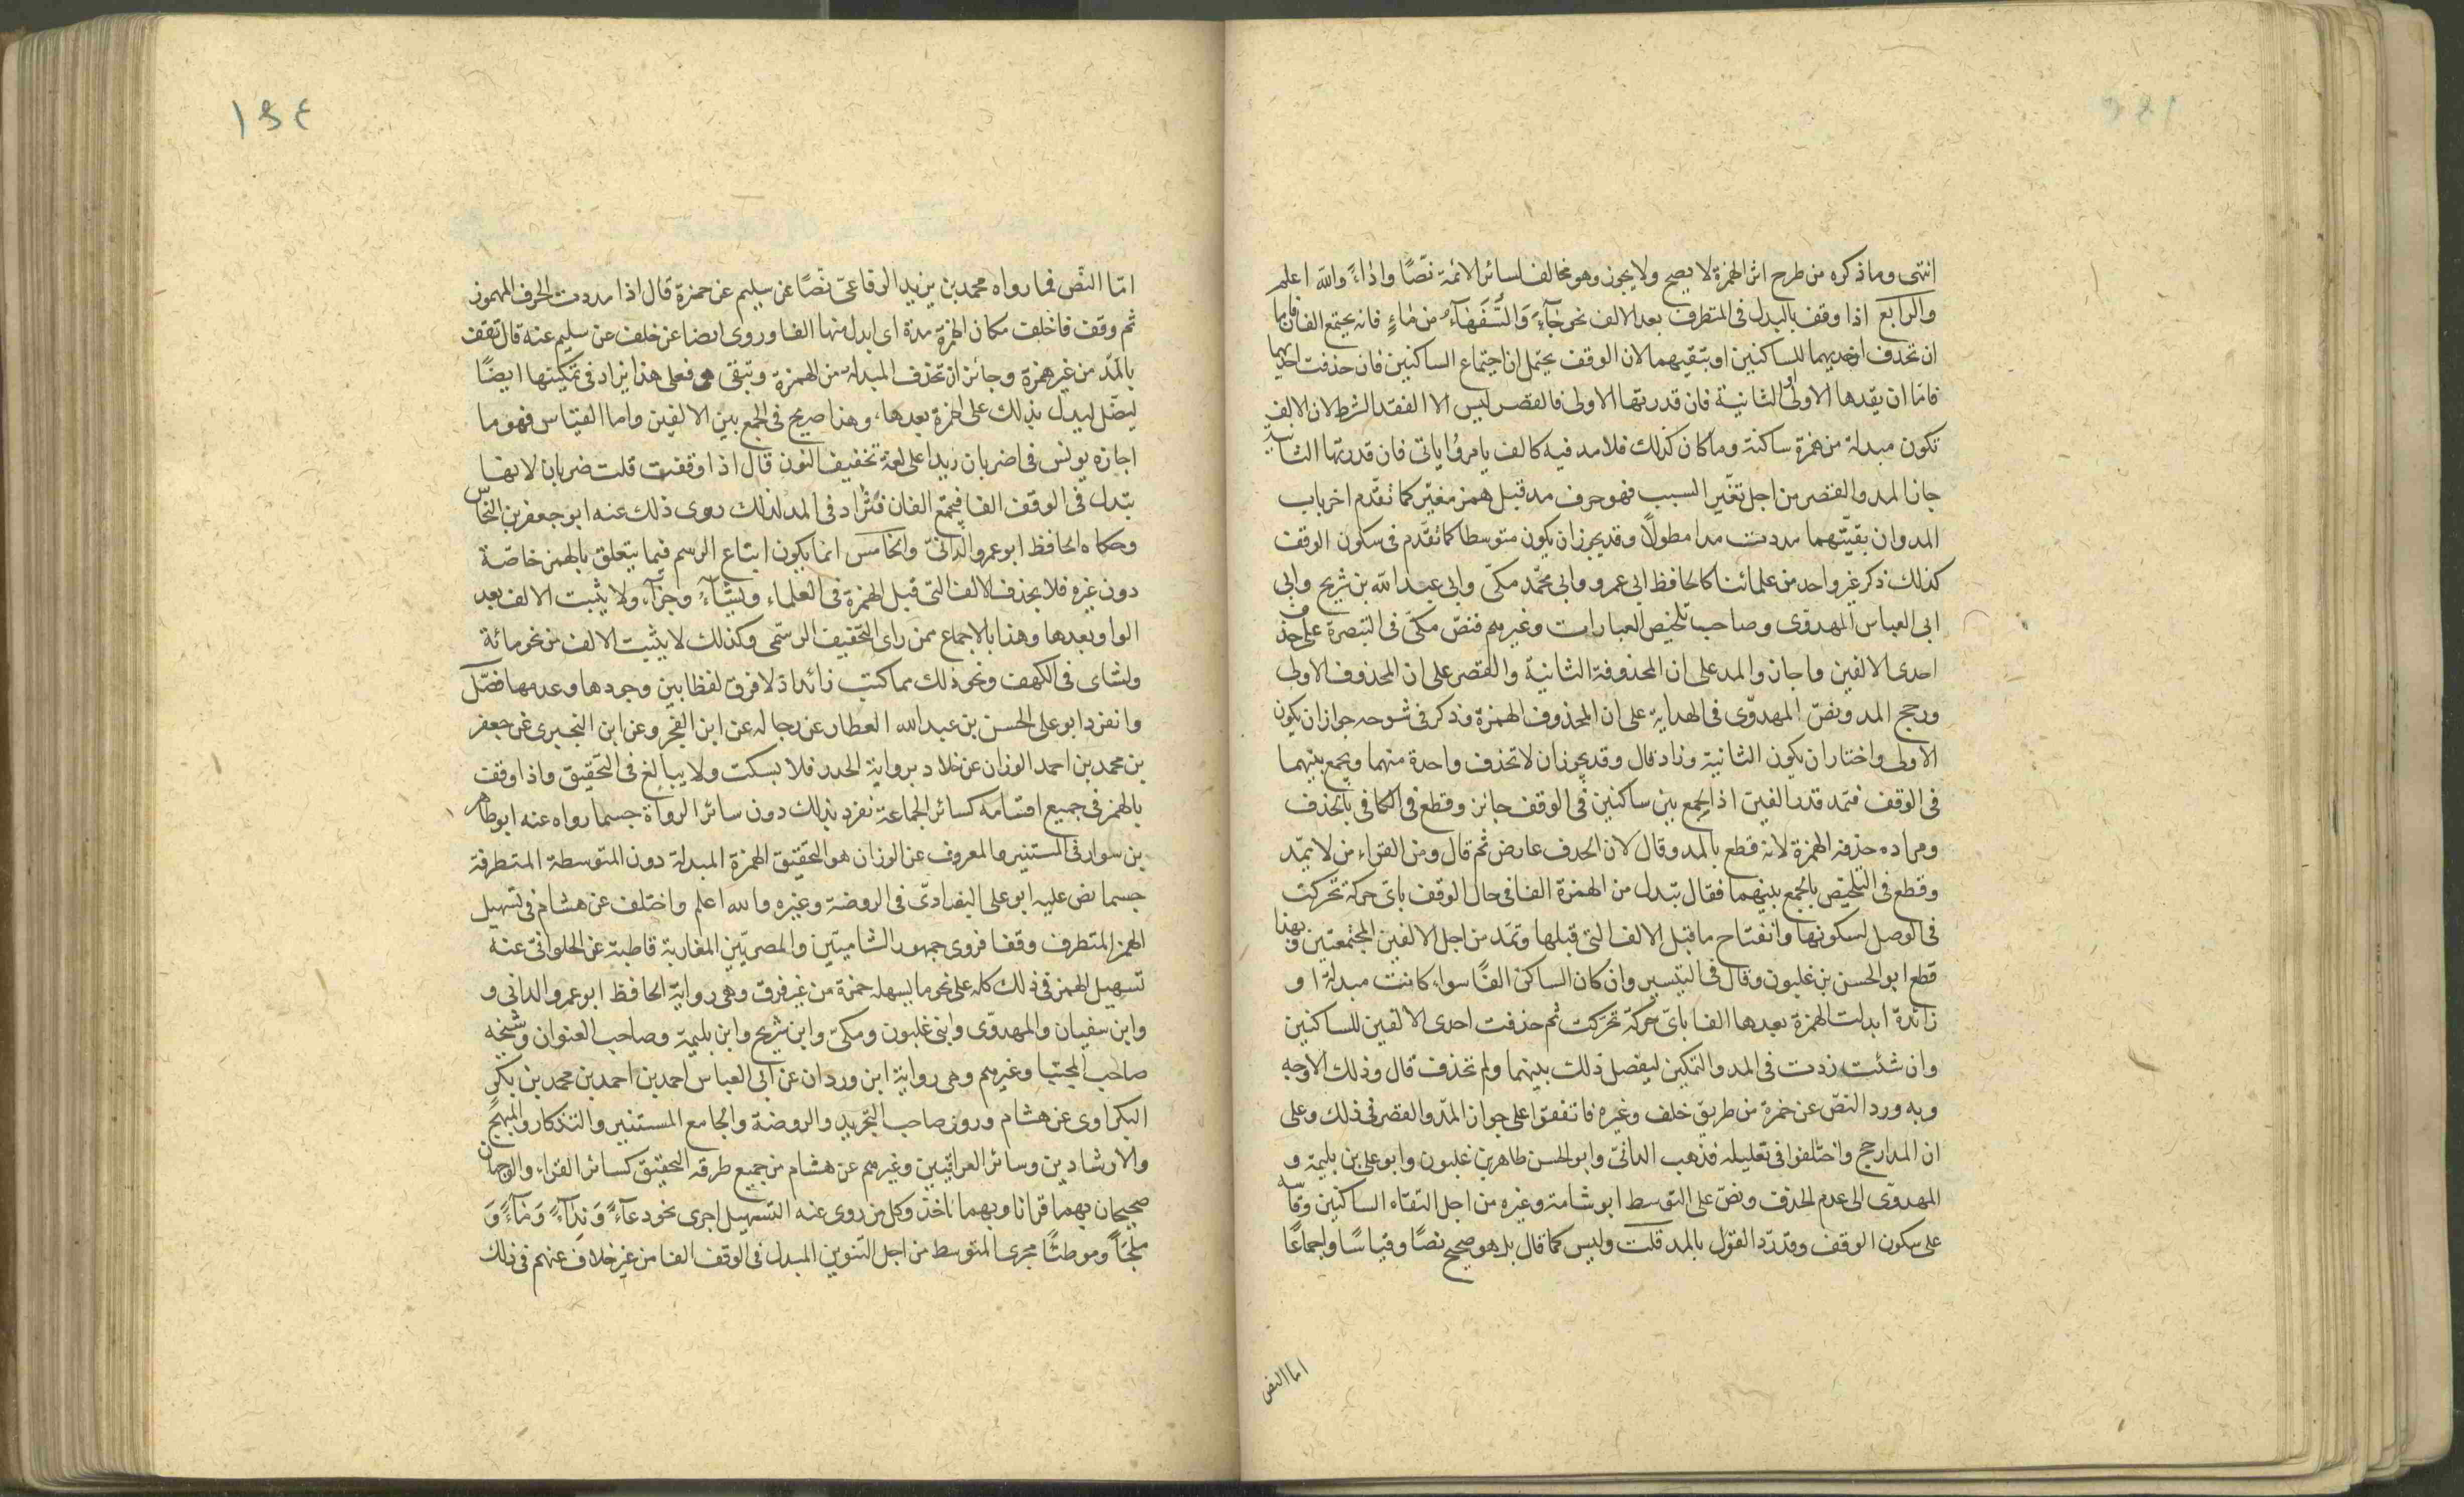 انتهى وما ذكره من طرح اثر الهمزة لا يصح ولا يجوز وهو مخالف لسائر الائمة نصّا واداءً والله اعلم
والرابع اذا وقف بالبدل فى المتطرف بعد الالف نحو جآءَ وَالسُّفَهَآءُ من مٰاءٍ فانه يجتمع الفان فاما
ان تحذف احديهما للساكنين او تبقيهما لان الوقف يحتمل اجتماع الساكنين فان حذفت احديهما
فاما ان يقدها الاولى او الثانية فان قدرتها الاولى فالقصر ليس الا لفقد الشرط لان الالف
تكون مبدلة من همزة ساكنة وما كان كذلك فلا مد فيه كالف يامرُ وياتى فان قدرتها الثانية
جاز المد والقصر من اجل تغير السبب فهو حرف مد قبل همز مغيّر كما تقدّم اخر باب
المد وان بقيّتهما مددت مدا مطولاً وقد يجوز ان يكون متوسطا كما تقدّم فى سكون الوقف
كذلك ذكر غير واحد من علمائنا كالحافظ ابى عمرو وابى محمّد مكّى وابى عبد الله بن شريح وابى
ابى العباس المهدوّى وصاحب تلخيص العبارات وغيرهم فنصّ مكّى فى التبصرة على حذف
احدى الالفين واجاز المد على ان المحذوفة الثانية والقصر على ان المحذوف الاولى
ورجح المد ونصّ المهدوّى فى الهداية على ان المحذوف الهمزة وذكر فى شرحه جواز ان يكون
الاولى واختار ان يكون الثانية وزاد قال وقد يجوز ان لا تحذف واحدة منهما ويجمع بينهما
فى الوقف فتمد قدر الفين اذ الجمع بين ساكنين فى الوقف جائز وقطع فى الكافى بالحذف
ومراده حذف الهمزة لانه قطع بالمد وقال لان الحذف عارض ثم قال ومن القراء من لا يمّد
وقطع فى التلخيص بالجمع بينهما فقال تبدل من الهمزة الفا فى حال الوقف باىّ حركة تحركت
فى الوصل لسكونها وانفتاح ما قبل الالف التى قبلها وتمّد من اجل الالفين المجتمعتين وبهذا
قطع ابو الحسن بن غلبون وقال فى التيسير وان كان الساكن الفًا سواء كانت مبدلة او
زائدة ابدلت الهمزة بعدها الفا باىّ حركة تحركت ثم حذفت احدى الالفين للساكنين
وان شئت زدت فى المد والتمكين ليفصل ذلك بينهما ولم تحذف قال وذلك الاوجه
وبه ورد النصّ عن حمزة من طريق خلف وغيره فاتفقوا على جواز المدّ والقصر فى ذلك وعلى
ان المد ارجح واختلفوا فى تعليله فذهب الدانىّ وابو الحسن طاهر بن غلبون وابو على بن بليمة و
المهدوّى الى عدم الحذف ونصّ على التوسط ابو شامة وغيره من اجل التقاء الساكنين وقاسه
على سكون الوقف وقد ردّ القول بالمد قلت وليس كما قال بل هو صحيح نصّا وقياسًا واجماعًا
اما النص
١٩٤
امّا النّص فما رواه محمد بن يزيد الرفاعىّ نصّا عن سليم عن حمزة قال اذا مددت الحرف المهموز
ثم وقف فاخلف مكان الهمزة مدة اى ابدل منها الفا وروى ايضا عن خلف عن سليم عنه قال تقف
بالمدّ من غير همزة وجائز ان تحذف المبدلة من الهمزة وتبقى هى فعلى هذا يزاد فى تمكينها ايضًا
ليصّل ليدل بذلك على الهمزة بعدها، وهذا صريح فى الجمع بين الالفين واما القياس فهو ما
اجازه يونس فى اضربان زيدا على لغة تخفيف النون قال اذا وقفت قلت ضربان لانها
تبدل فى الوقف الفا فيجتمع الفان فتُزاد فى المد لذلك روى ذلك عنه ابو جعفر بن النحّاس
وحكاه الحافظ ابو عمرو الدّانىّ والخامس انما يكون اتباع الرسم فيما يتعلق بالهمز خاصّة
دون غيره فلا يحذف الالف التى قبل الهمزة فى العلماء ويشآءُ وجزآء ولا يثبت الالف بعد
الواو بعدها وهذا بالاجماع ممن راى التخفيف الرسمّى وكذلك لا يثبت الالف من نحو مائة
ولشاى فى الكهف ونحو ذلك مما كتب زائدا اذ لا فرق لفظا بين وجودها وعدمها فصّل
وانفرد ابو على الحسن بن عبد الله العطار عن رجاله عن ابن الفخر وعن ابن البخبرى عن جعفر
بن محمد بن احمد الوزان عن خلاد برواية الحدر فلا يسكت ولا يبالغ فى التحقيق واذا وقف
بالهمز فى جميع اقسامه كسائر الجماعة تفرد بذلك دون سائر الرواة حسما رواه عنه ابو طاهر
بن سوار فى المستنير والمعروف عن الوزان هو التحقيق الهمزة المبدلة دون المتوسطة المتطرفة
حسما نص عليه ابو على البغدادىّ فى الروضة وغيره والله اعلم واختلف عن هشام فى تسهيل
الهمز المتطرف وقفا فروى جمهور الشاميّين والمصريّين المغاربة قاطبة عن الحلوانىّ عنه
تسهيل الهمز فى ذلك كله على نحو ما يسهله حمزة من غير فرق وهى رواية الحافظ ابو عمرو الدانى و
وابن سفيان والمهدوّى وابنى غلبون ومكىّ وابن شريح وابن بليمة وصاحب العنوان وشيخه
صاحب المجتبا وغيرهم وهى رواية ابن وردان عن ابى العباس احمد بن احمد بن محمد بن بكر
البكراوى عن هشام وروى صاحب التجريد والروضة والجامع المستنير والتذكار والمبهج
والارشادين وسائر العراقيين وغيرهم عن هشام من جميع طرقه التحقيق كسائر القراء والوجهان
صحيحان بهما قرانا وبهما ناخذ وكل من روى عنه التسهيل اجرى نحو دعآءً وَنِدَآءً وَمَآءً وَ
ملجَأً وموطئًا مجرى المتوسط من اجل التنوين المبدل فى الوقف الفا من غير خلاف عنهم فى ذلك